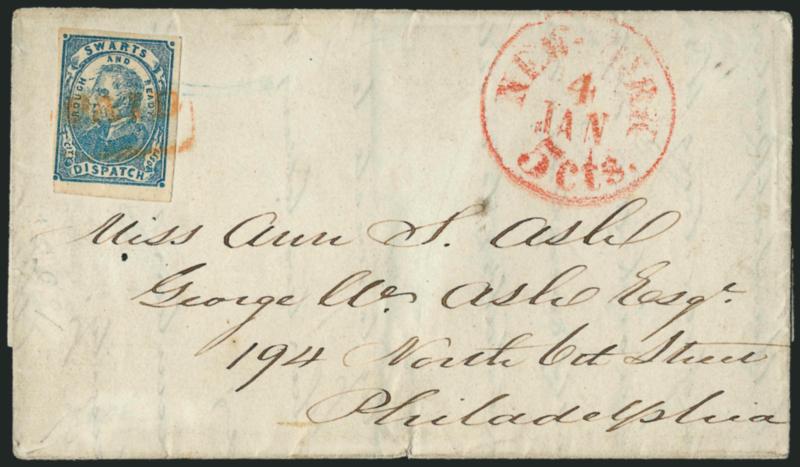 SWARTS
ROUGH AND READY
CITY POST
DISPATCH
NEW-YORK
4
JAN
5 cts.
Miss Ann S. Ash
George W. Ash Esqr.
194 North 6th Street
Philadelphia